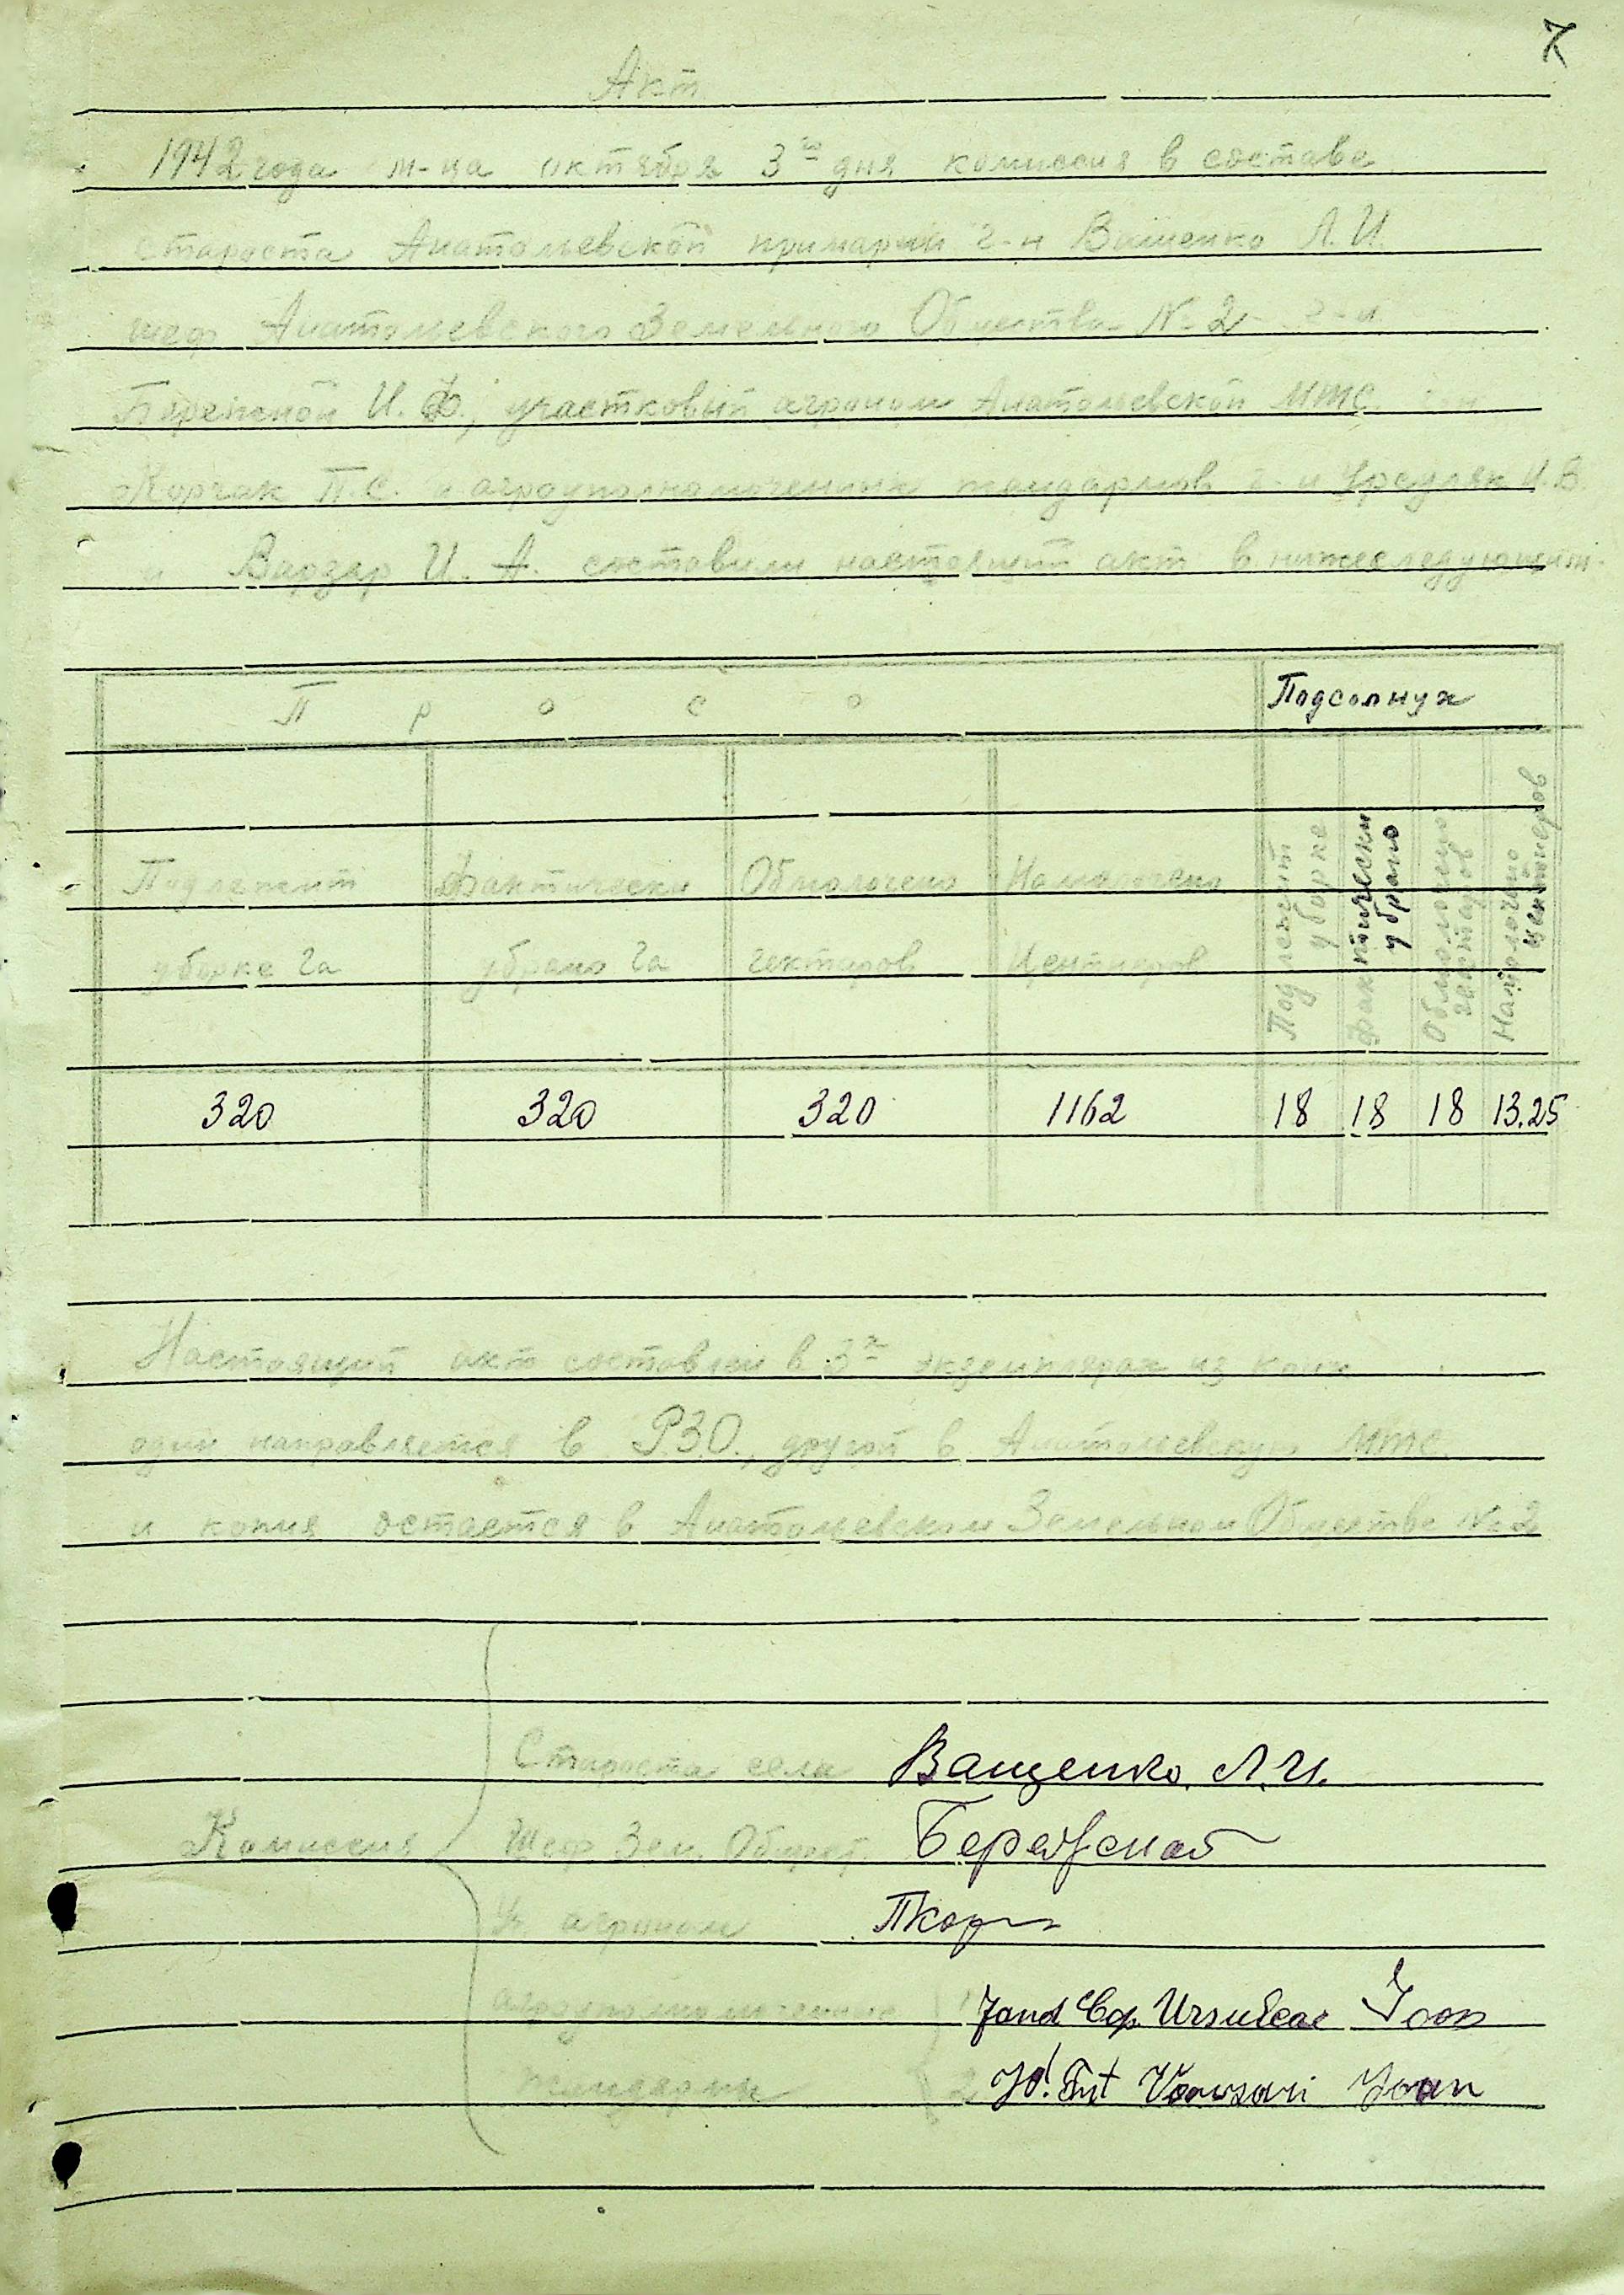 7
Акт
1942 года м-ца октября 3го дня комиссия в составе
староста Анатольевской примарии г-н Ващенко Л. И.
шеф Анатольевского Земельного Общества № 2 г-н
Бережной И. Ф., участковый агроном Анатольевской МТС г-н
Корчак П. С. и агроуполномоченных жандармов г-н И. Б.
и И. А. составили настоящий акт в нижеследующем
Просо
Подсолнух
Подлежит уборке га
Фактически убрано га
Обмолочено гектаров
Намолочено Центнеров
Подлежит уборке
Фактически убрано
Обмолочено гектаров
Намолочено центнеров
320 320 320 1162 18 18 18 13.25
Настоящий акт составлен в 3х экземплярах из коих
один направляется в Р.З.О., другой в Анатольевскую МТС.
и копия остается в Анатольевском Земельном Обществе № 2
Комиссия
Староста села Ващенко. Л. И.
Шеф Зем. Общест. Бережной
Уч агроном ПКорч
агроуполномоченные 1 Jand Cap. Ursuleac Ioan
жандармы 2 Ioan